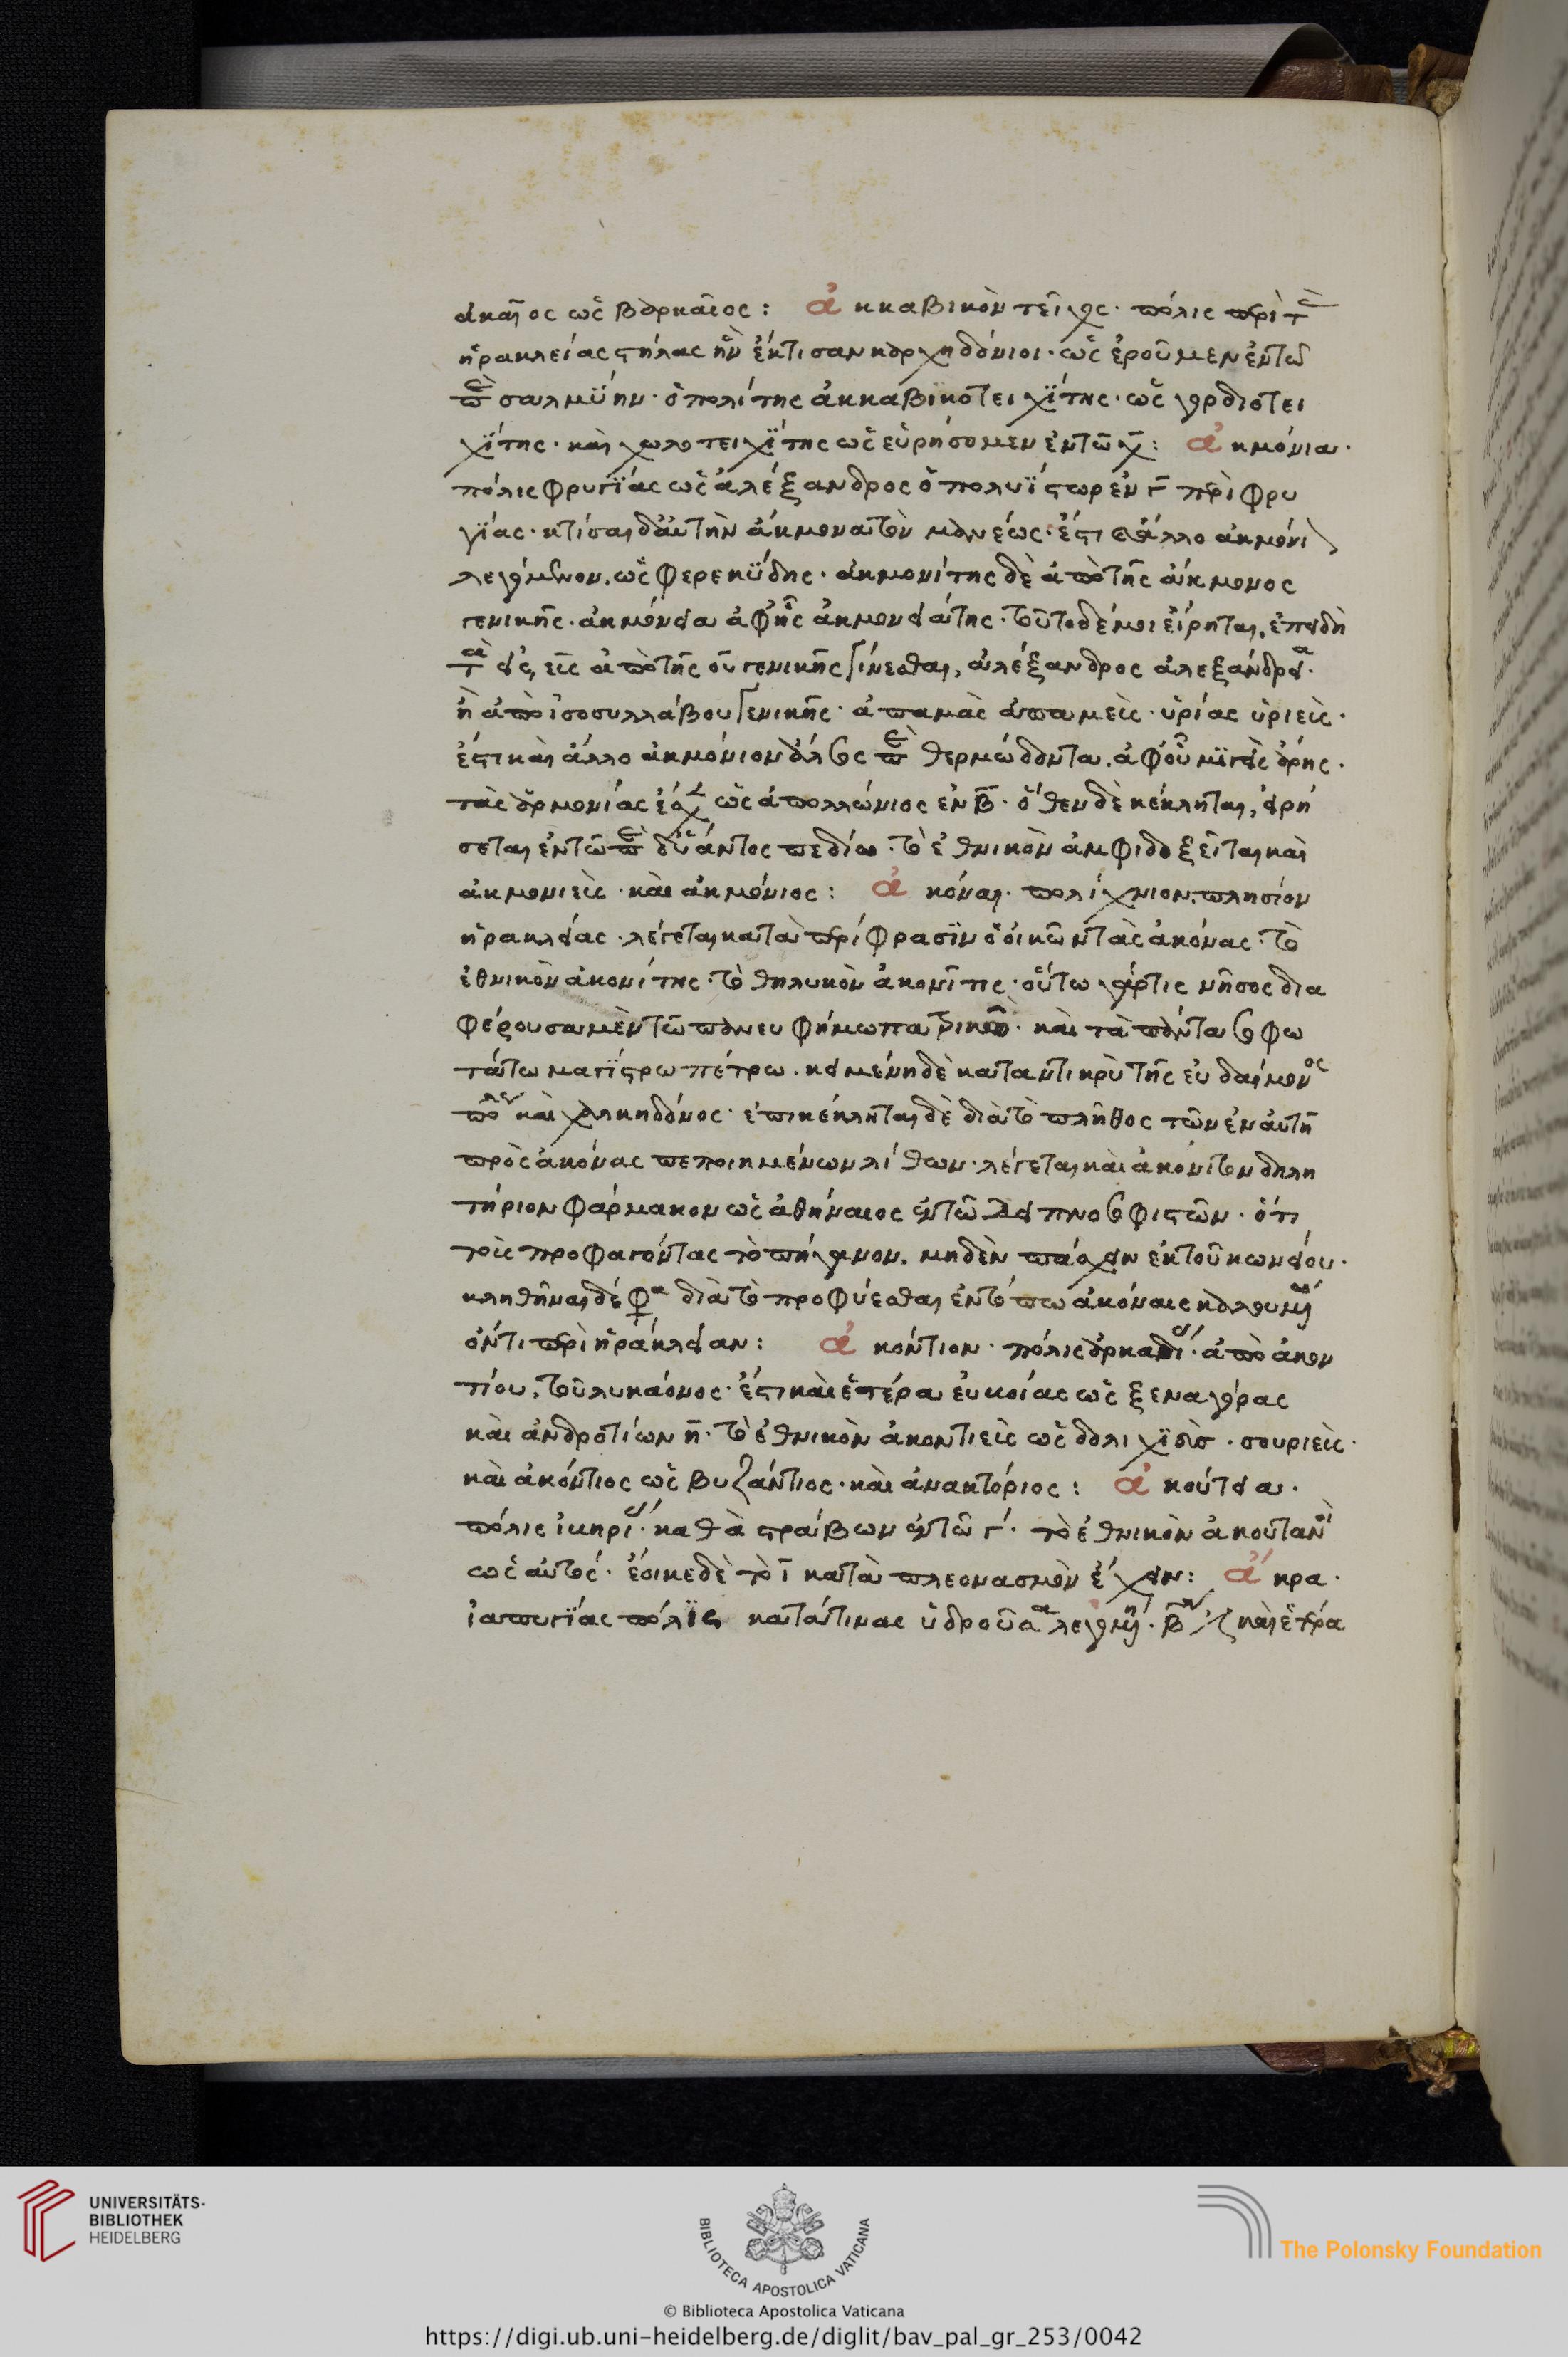 ακαῖος ὡς βαρκαῖος: ἀκκαβικὸν τεῖχος· πόλις περὶ τὰς
ἡρακλείας στήλας ἣν ἔκτισαν καρχηδόνιοι· ὡς ἐροῦμεν ἐν τῶ
σαλμϋην· ὁ πολίτης ἀκκαβικοτειχίτης· ὡς γορδιοτει
χίτης· καὶ χωλοτειχίτης ὡς εὑρήσομεν ἐν τῶ χ̄: ἀκμόνια·
πόλις φρυγίας ὡς ἀλέξανδρος ὁ πολυΐστωρ ἐν γ̄ περὶ φρυ
γίας· κτίσαι δ' αὐτὴν ἄκμονα τὸν μανέως· ἔστι καὶ ἄλλο ἀκμόνι
λεγόμενον, ὡς φερεκύδης· ἀκμονίτης δὲ ἀπὸ τῆς ἄκμονος
γενικῆς· ἀκμόνεια ἀφ' ἧς ἀκμονειάτης· τοῦτο δέ μοι εἴρηται, ἐπειδὴ
ἀπὸ τῆς ου γενικῆς γίνεσθαι, ἀλέξανδρος ἀλεξάνδρεια·
ἢ ἀπὸ ἰσοσυλλάβου γενικῆς· ἀπαμὰς ἀπαμεὶς· ὑρίας ὑριεὶς·
ἔστι καὶ ἄλλο ἀκμόνιον ἄλσος περὶ θερμώδοντα, ἀφ' οὗ μιγεὶς ἄρης·
τὰς ἁρμονίας ὡς ἀπολλώνιος ἐν β̄· ὅθεν δὲ κέκληται, εἰρή
σεται ἐν τῶ περὶ δυάντος πεδίω· τὸ ἐθνικὸν ἀμφιδοξεῖται καὶ
ἀκμονιεὶς· καὶ ἀκμόνιος: ἀκόναι· πολίχνιον, πλησίον
ἡρακλείας· λέγεται κατὰ περίφρασιν ὁ οἰκῶν τὰς ἀκόνας· τὸ
ἐθνικὸν ἀκονίτης· τὸ θηλυκὸν ἀκονῖτις· οὕτω γάρ τις νῆσος δια
φέρουσα μὲν τῶ πανευφήμω πατρικίω· καὶ τὰ πάντα σοφω
τάτω μαγίστρω πέτρω· κειμένη δὲ καταντικρὺ τῆς εὐδαίμονος
πόλεως καὶ χαλκηδόνος· ἐπικέκληται δὲ διὰ τὸ πλῆθος τῶν ἐν αὐτῆ
πρὸς ἀκόνας πεποιημένων λίθων· λέγεται καὶ ἀκόνιτον δηλη
τήριον φάρμακον ὡς ἀθήναιος ἐν τῶ δειπνοσοφιστῶν· ὅτι
τοὶς προφαγόντας τὸ πήγανον, μηδὲν πάσχειν ἐκ τοῦ κωνείου·
κληθῆναι δέ φα διὰ τὸ προφύεσθαι ἐν τόπω ἀκόναις καλουμένω
ὄντι περὶ ἡράκλειαν: ἀκόντιον· πόλις ἀρκαδίας· ἀπὸ ἀκον
τίου, τοῦ λυκάονος· ἔστι καὶ ἑτέρα εὐκοίας ὡς ξεναγόρας
καὶ ἀνδροτίων η̄· τὸ ἐθνικὸν ἀκοντιεὶς ὡς δολιχισὶσ· σουριεὶς·
καὶ ἀκόντιος ὡς βυζάντιος· καὶ ἀνακτόριος: ἀκούτεια·
πόλις ἰκηρίας· καθὰ στράβων ἐν τῶ γ̄· τὸ ἐθνικὸν ἀκουτανοὶ
ὡς αὐτὸς· ἔοικε δὲ τὸ ῑ κατὰ πλεονασμὸν ἔχειν: ἄκρα·
ἰαπυγίας πόλις κατά τινας ὑδροῦσα λεγομένη· β̄ καὶ ἑτέρα
UNIVERSITÄTS-
BIBLIOTHEK
HEIDELBERG
BIBLIOTECA APOSTOLICA VATICANA
The Polonsky Foundation
© Biblioteca Apostolica Vaticana
https://digi.ub.uni-heidelberg.de/diglit/bav_pal_gr_253/0042